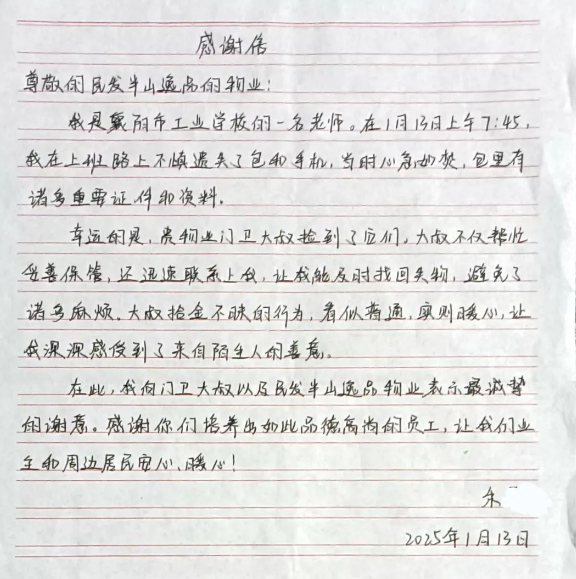 感谢信
尊敬的民发半山逸品的物业:
我是襄阳市工业学校的一名老师。在1月13日上午7:45,
我在上班路上不慎遗失了包和手机,当时心急如焚,包里有
诸多重要证件和资料。
幸运的是,贵物业门卫大叔捡到了它们,大叔不仅帮忙
妥善保管,还迅速联系上我,让我能及时找回失物,避免了
诸多麻烦。大叔拾金不昧的行为,看似普通,实则暖心,让
我深深感受到了来自陌生人的善意。
在此,我向门卫大叔以及民发半山逸品物业表示最诚挚
的谢意。感谢你们培养出如此品德高尚的员工,让我们业
主和周边居民安心、暖心!
朱
2025年1月13日